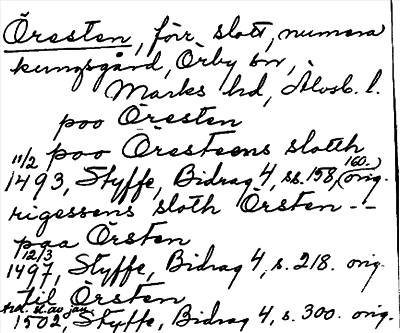 Öresten, förr slott, numera
kungsgård, Örby sn,
Marks hd, Älvsb. l.
poo Öresten
poo Öresteens slotth
11/2 1493, Styffe, Bidrag 4, ss. 158, (160.) orig.
rigessens sloth Öresten --
paa Öresten
12/3 1497, Styffe, Bidrag 4, s. 218. orig.
til Öresten
1502, Styffe, Bidrag 4, s. 300. orig.